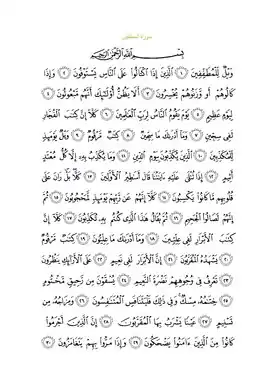 سورة المطففين
بِسْمِ اللَّهِ الرَّحْمَٰنِ الرَّحِيمِ
وَيْلٌ لِّلْمُطَفِّفِينَ ١ الَّذِينَ إِذَا اكْتَالُوا عَلَى النَّاسِ يَسْتَوْفُونَ ٢ وَإِذَا
كَالُوهُمْ أَو وَّزَنُوهُمْ يُخْسِرُونَ ٣ أَلَا يَظُنُّ أُولَٰئِكَ أَنَّهُم مَّبْعُوثُونَ ٤
لِيَوْمٍ عَظِيمٍ ٥ يَوْمَ يَقُومُ النَّاسُ لِرَبِّ الْعَالَمِينَ ٦ كَلَّا إِنَّ كِتَابَ الْفُجَّارِ
لَفِي سِجِّينٍ ٧ وَمَا أَدْرَاكَ مَا سِجِّينٌ ٨ كِتَابٌ مَّرْقُومٌ ٩ وَيْلٌ يَوْمَئِذٍ
لِّلْمُكَذِّبِينَ ١٠ الَّذِينَ يُكَذِّبُونَ بِيَوْمِ الدِّينِ ١١ وَمَا يُكَذِّبُ بِهِ إِلَّا كُلُّ مُعْتَدٍ
أَثِيمٍ ١٢ إِذَا تُتْلَىٰ عَلَيْهِ آيَاتُنَا قَالَ أَسَاطِيرُ الْأَوَّلِينَ ١٣ كَلَّا بَلْ رَانَ عَلَىٰ
قُلُوبِهِم مَّا كَانُوا يَكْسِبُونَ ١٤ كَلَّا إِنَّهُمْ عَن رَّبِّهِمْ يَوْمَئِذٍ لَّمَحْجُوبُونَ ١٥ ثُمَّ
إِنَّهُمْ لَصَالُو الْجَحِيمِ ١٦ ثُمَّ يُقَالُ هَٰذَا الَّذِي كُنتُم بِهِ تُكَذِّبُونَ ١٧ كَلَّا إِنَّ
كِتَابَ الْأَبْرَارِ لَفِي عِلِّيِّينَ ١٨ وَمَا أَدْرَاكَ مَا عِلِّيُّونَ ١٩ كِتَابٌ مَّرْقُومٌ
٢٠ يَشْهَدُهُ الْمُقَرَّبُونَ ٢١ إِنَّ الْأَبْرَارَ لَفِي نَعِيمٍ ٢٢ عَلَى الْأَرَائِكِ يَنظُرُونَ
٢٣ تَعْرِفُ فِي وُجُوهِهِمْ نَضْرَةَ النَّعِيمِ ٢٤ يُسْقَوْنَ مِن رَّحِيقٍ مَّخْتُومٍ
٢٥ خِتَامُهُ مِسْكٌ وَفِي ذَٰلِكَ فَلْيَتَنَافَسِ الْمُتَنَافِسُونَ ٢٦ وَمِزَاجُهُ مِن
تَسْنِيمٍ ٢٧ عَيْنًا يَشْرَبُ بِهَا الْمُقَرَّبُونَ ٢٨ إِنَّ الَّذِينَ أَجْرَمُوا
كَانُوا مِنَ الَّذِينَ آمَنُوا يَضْحَكُونَ ٢٩ وَإِذَا مَرُّوا بِهِمْ يَتَغَامَزُونَ ٣٠